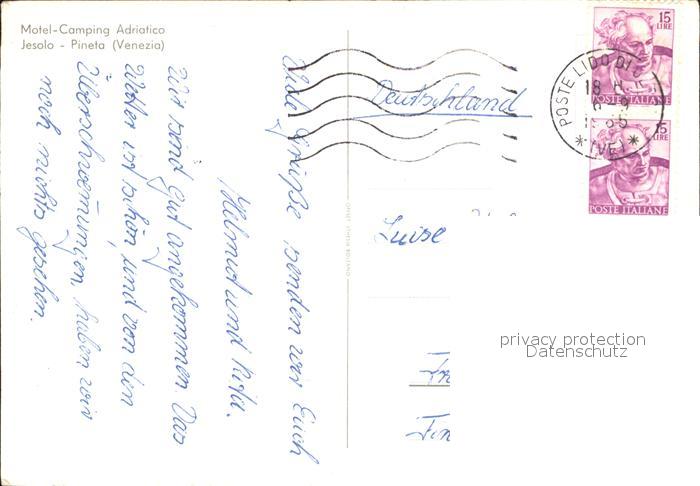 Motel-Camping Adriatico
Jesolo - Pineta (Venezia)
Viele Grüße senden wir Euch
Helmut und
Wir sind gut angekommen Das
Wetter ist schön, und von den
Überschwemmungen, haben wir
noch nichts gesehen.
Deutschland
Luise
15
LIRE
POSTE ITALIANE
15
LIRE
POSTE ITALIANE
POSTE LIDO DI
18
*(VE)*
privacy protection
Datenschutz